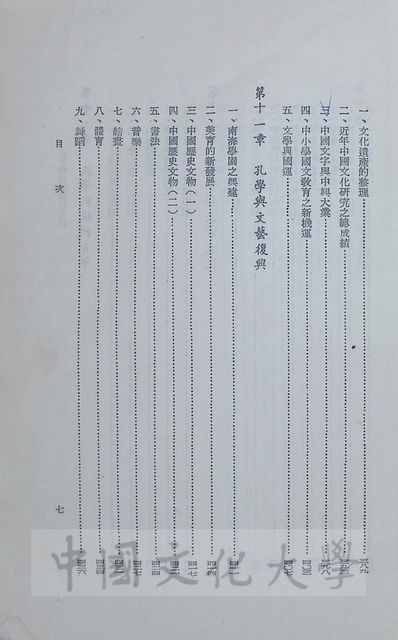 一、文化遺產的整理……三八九
二、近年中國文化研究之總成績……三九二
三、中國文字與中興大業……三九八
四、中小學國文教育之新機運……四〇三
五、文學與國運……四〇七
第十一章　孔學與文藝復興
一、南海學園之興建……四一一
二、美育的新發展……四一四
三、中國歷史文物（一）……四一七
四、中國歷史文物（二）……四二一
五、書法……四三四
六、音樂……四三七
七、繪畫……四四一
八、體育……四四四
九、舞蹈……四四六
目次
七
中國文化大學